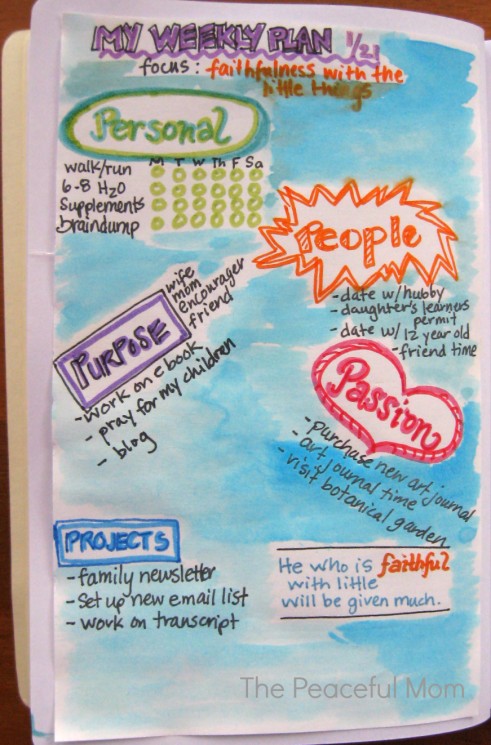 MY WEEKLY PLAN 1/21
focus: faithfulness with the
little things
Personal
M T W Th F Sa
walk/run
6-8 H2O
Supplements
braindump
People
-date w/hubby
-daughter's learners
permit
-date w/ 12 year old
-friend time
wife
mom
encourager
friend
PURPOSE
-work on ebook
-pray for my children
- blog
Passion
-purchase new art journal
-art journal time
-visit botanical garden
PROJECTS
-family newsletter
-Set up new email list
-work on transcript
He who is faithful
with little
will be given much.
The Peaceful Mom